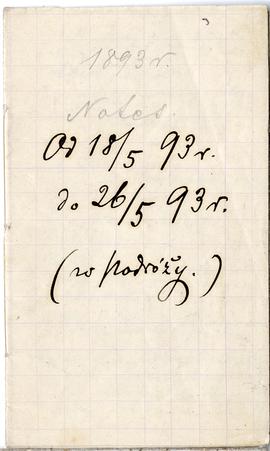 1893 r.
Notes.
Od 18/5 93 r.
do 26/5 93 r.
(w podróży.)